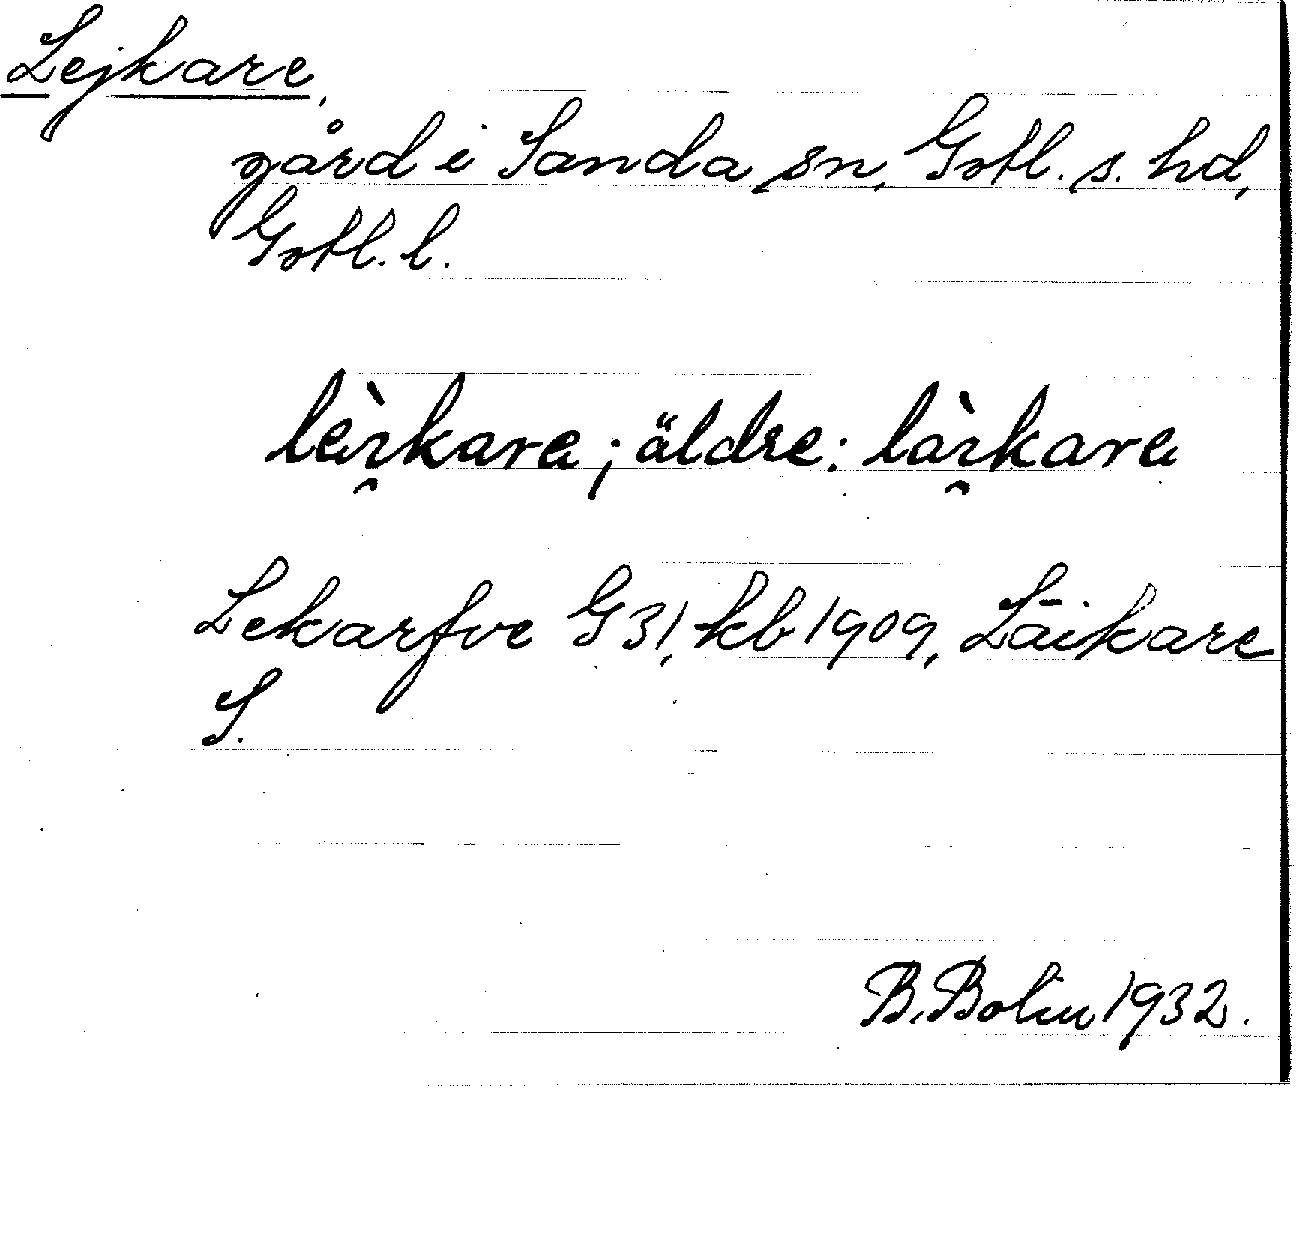 Lejkare,
gård i Sanda sn, Gotl. s. hd,
Gotl. l.
lèi̯kara; äldre: lài̯kara
Lekarfve G 31, kb 1909, Läikare
S.
B. Bolin 1932.